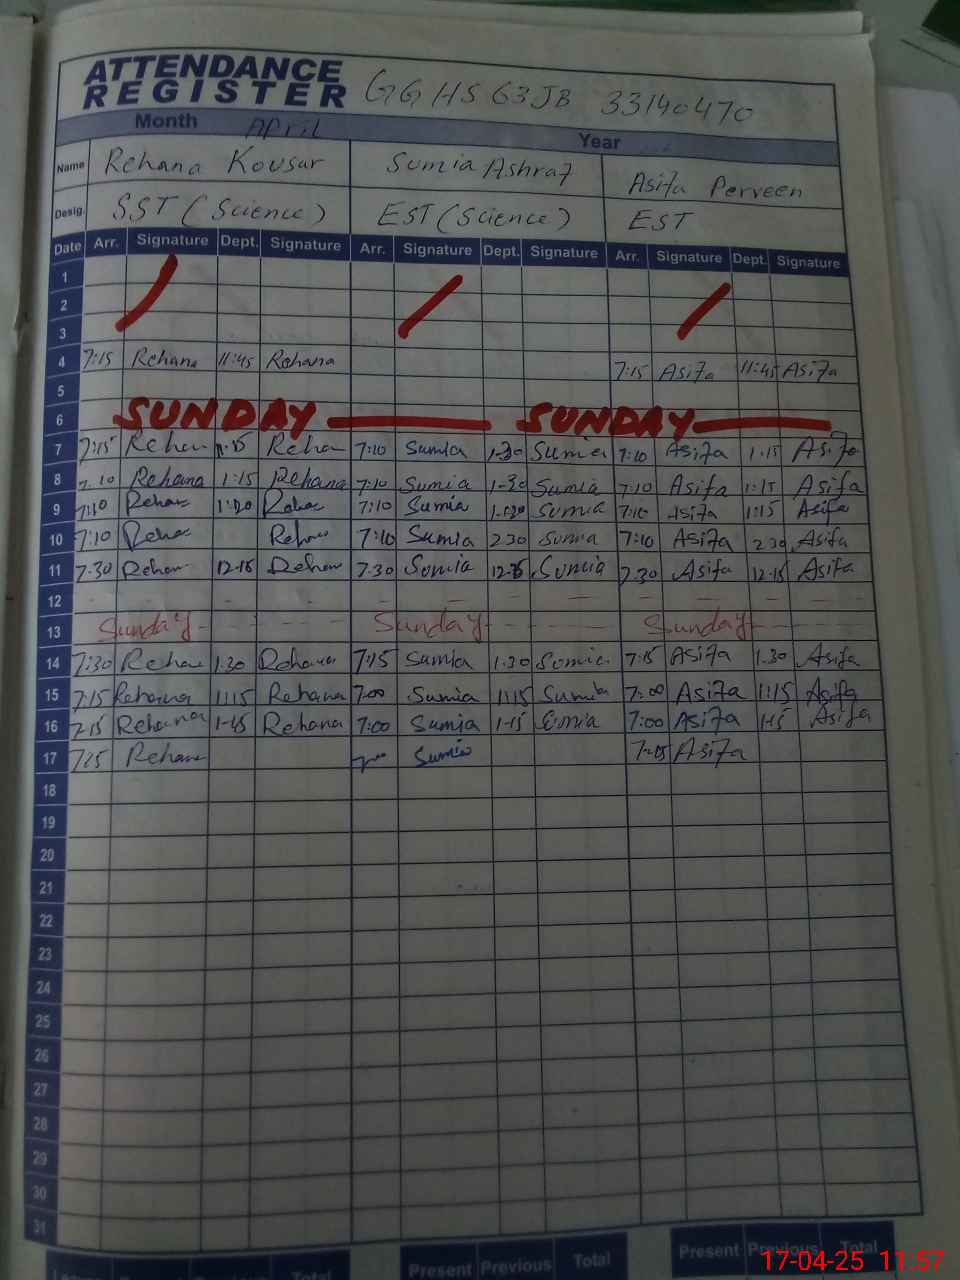 ATTENDANCE
REGISTER GGHS 63JB 33140470
Month April Year
Name Rehana Kousar Sumia Ashraf Asifa Perveen
Desig. SST (Science) EST (Science) EST
Date Arr. Signature Dept. Signature Arr. Signature Dept. Signature Arr. Signature Dept. Signature
1
2
3
4 7:15 Rehana 11:45 Rehana 7:15 Asifa 11:45 Asifa
5
6 SUNDAY SUNDAY
7 7:15 Rehana Rehana 7:10 Sumia 1-30 Sumia 7:10 Asifa 1:15 Asifa
8 7.10 Rehana 1:15 Rehana 7:10 Sumia 1-30 Sumia 7:10 Asifa 1:15 Asifa
9 7:10 Rehana Rehana 7:10 Sumia Sumia 7:10 Asifa 1:15 Asifa
10 7:10 Rehana Rehana 7:10 Sumia 2 30 Sumia 7:10 Asifa 2 30 Asifa
11 7.30 Rehana 12-15 Rehana 7.30 Sumia Sumia 7.30 Asifa 12-15 Asifa
12
13 Sunday Sunday Sunday
14 7:30 Rehana 1.30 Rehana 7:15 Sumia 1.30 Sumia 7:15 Asifa 1.30 Asifa
15 7:15 Rehana 1:15 Rehana 7:00 Sumia 1:15 Sumia 7:00 Asifa 1:15 Asifa
16 7:15 Rehana 1-15 Rehana 7:00 Sumia 1-15 Sumia 7:00 Asifa 1:15 Asifa
17 7:15 Rehana Sumia 7:05 Asifa
18
19
20
21
22
23
24
25
26
27
28
29
30
31
Total Present Previous Total Present Previous Total
17-04-25 11:57